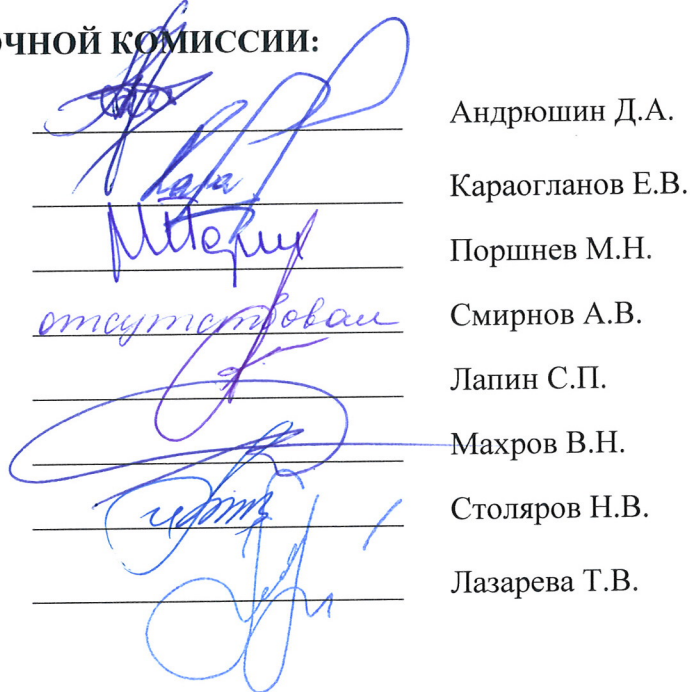 ОЧНОЙ КОМИССИИ:
Андрюшин Д.А.
Караогланов Е.В.
Поршнев М.Н.
отсутствовал Смирнов А.В.
Лапин С.П.
Махров В.Н.
Столяров Н.В.
Лазарева Т.В.